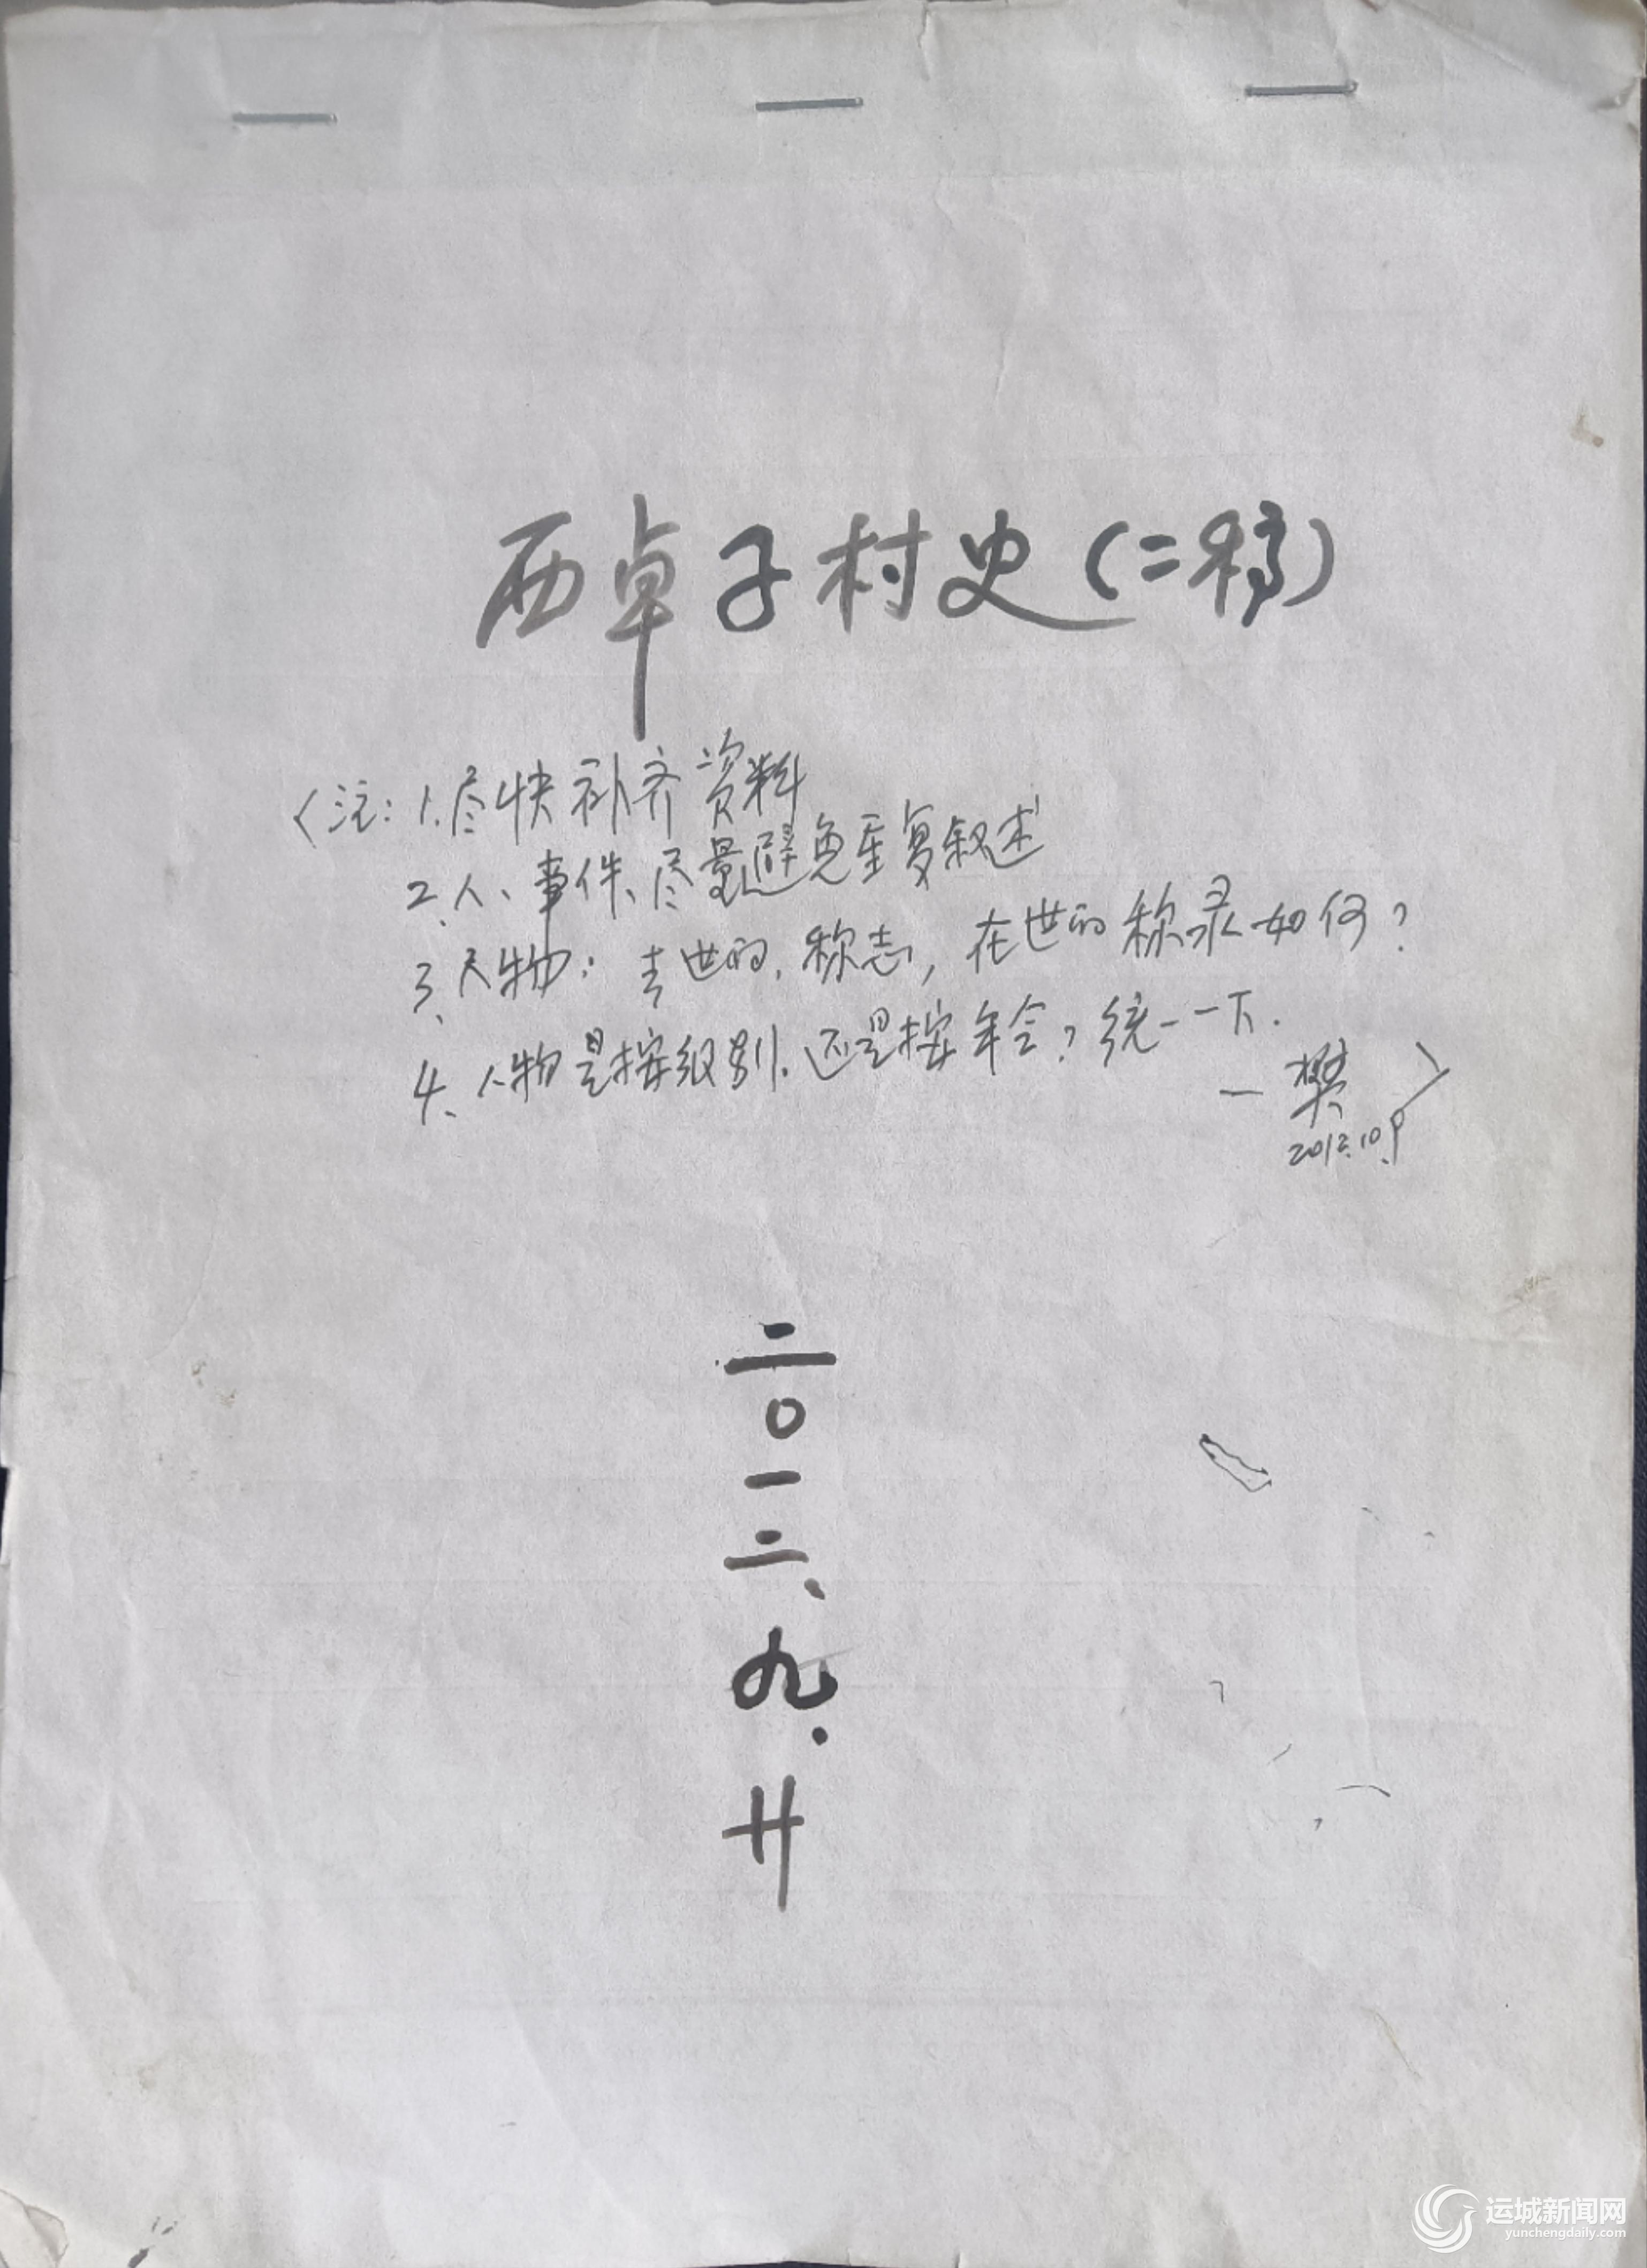 西卓子村史（二稿）
〈注：1.尽快补齐资料
2、人、事件、尽量避免重复叙述
3、人物：去世的，称志，在世的称录如何？
4、人物是按级别，还是按年令？统一一下.
—樊〉
2012.10.9
二〇一二、九.廿
运城新闻网
yunchengdaily.com